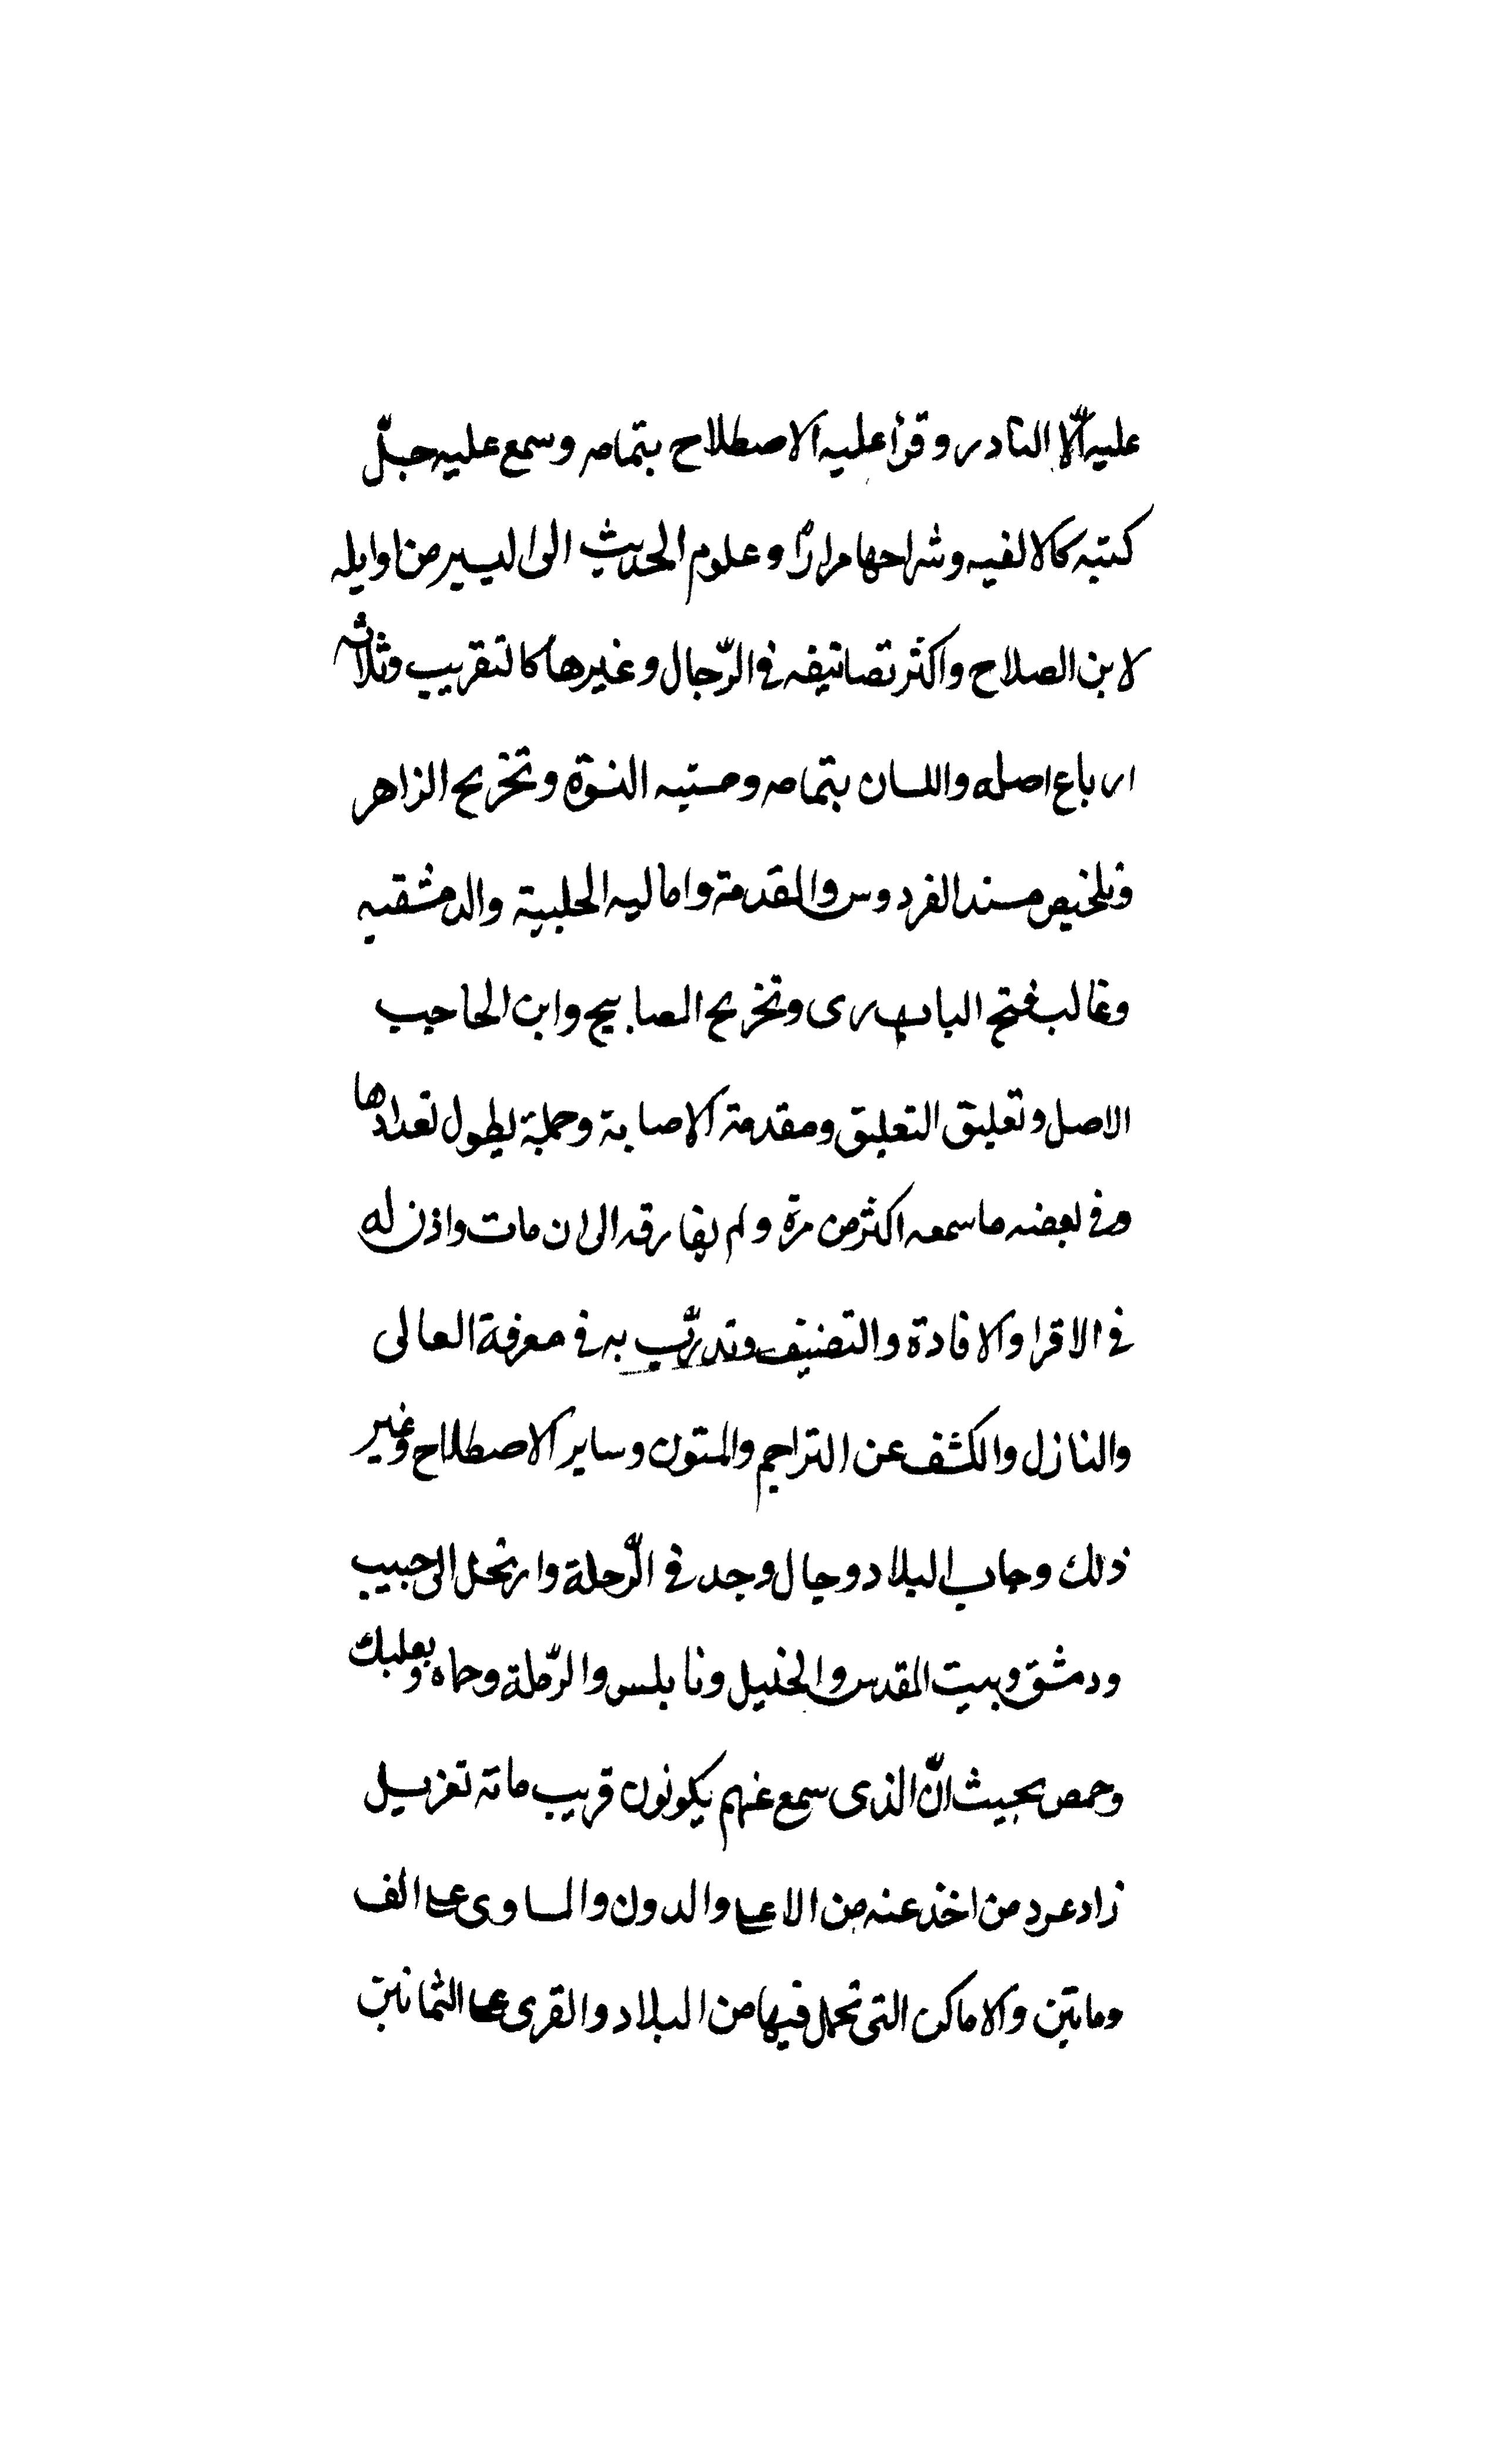 عليه الّا النادر وقرأ عليه الاصطلاح بتمامه وسمع عليه جلّ
كتبه كالالفيه وشراحها مرارًا وعلوم الحديث الى اليسير من اوايله
لابن الصلاح واكثر تصانيفه في الرّجال وغيرها كالتقريب وثلاثه
ارباع اصله واللسان بتمامه ومستبه النسوة وتخريج الزاهر
وتلخيص مسند الفردوس والمقدمة واماليه الحلبية والدمشقيه
وغالب فتح البارى وتخريج المصابيح وابن الحاجب
الاصل وتعليق التعليق ومقدمة الاصابة وجملة يطول تعدادها
وفي بعضه ما سمعه اكثر من مرة ولم يفارقه الى ان مات واذن له
في الاقرا والافادة والتصنيف وتدرّب به في معرفة العالى
والنازل والكشف عن التراجم والمتون وساير الاصطلاح وغير
ذلك وجاب البلاد وجال وجد في الرّحلة وارتحل الى حبيب
ودمشق وبيت المقدس والخليل ونابلس والرّملة وحماه وبعلبك
وحمص بحيث انّ الذى سمع عنهم يكونون قريب ماته تعزيل
زاد عدد من اخذ عنه من الاعلى والدون والمساوى على الف
وماتين والاماكن التى تحمل فيها من البلاد والقرى على الثمانين